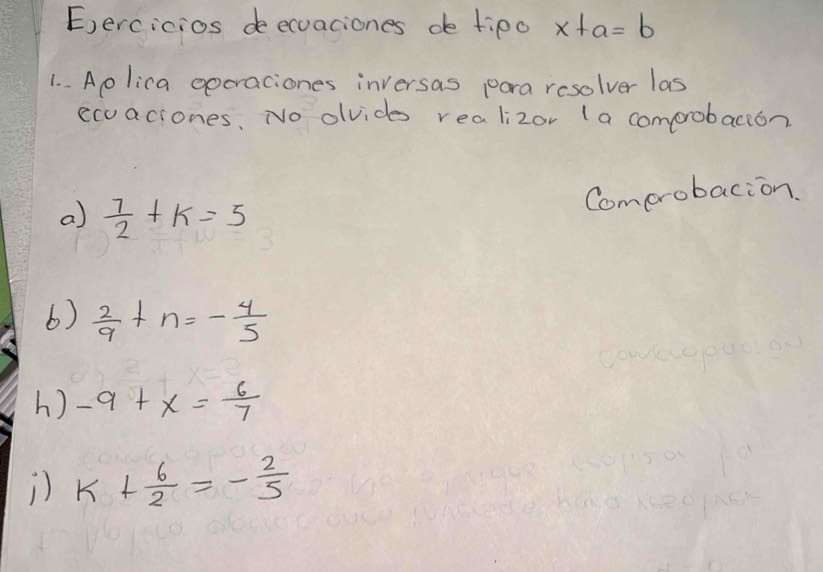 Ejercicios de ecuaciones de tipo x+a=b
1.- Aplica operaciones inversas para resolver las
ecuaciones. No olvides realizar la comprobación
Comprobación.
a) 7/2 + K = 5
b) 2/9 + n = - 4/5
h) -9 + x = 6/7
j) K + 6/2 = - 2/5